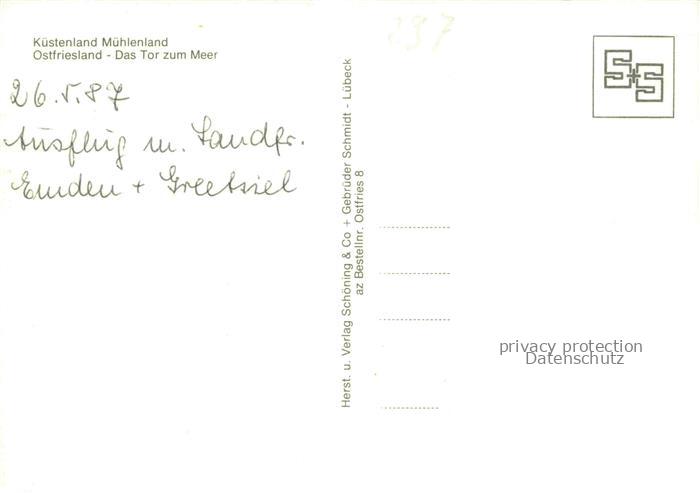 Küstenland Mühlenland
Ostfriesland - Das Tor zum Meer
26.5.87
Ausflug m. Landfr.
Emden + Greetsiel
Herst. u. Verlag Schöning & Co + Gebrüder Schmidt - Lübeck
az Bestellnr. Ostfries 8
237
S+S
privacy protection
Datenschutz